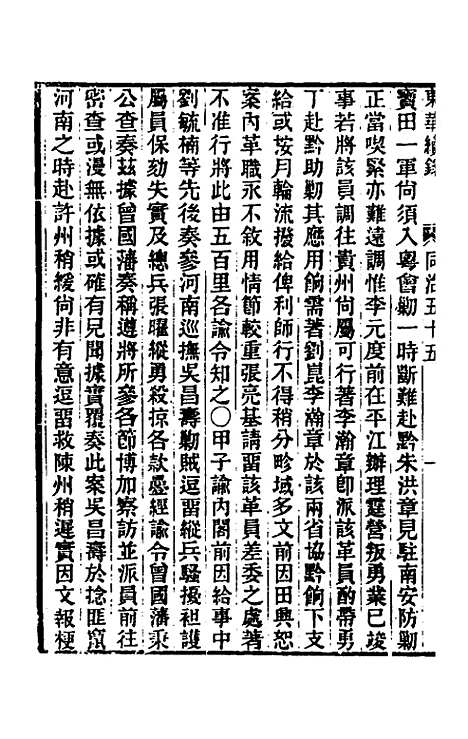 東華續錄　同治五十五　一
寶田一軍尙須入粵會勦一時斷難赴黔朱洪章見駐南安防勦
正當喫緊亦難遠調惟李元度前在平江辦理霆營叛勇業已竣
事若將該員調往貴州尙屬可行著李瀚章卽派該革員酌帶勇
丁赴黔助勦其應用餉需著劉崑李瀚章於該兩省協黔餉下支
給或按月輪流撥給俾利師行不得稍分畛域多文前因田興恕
案內革職永不敘用情節較重張亮基請畱該革員差委之處著
不准行將此由五百里各諭令知之○甲子諭內閣前因給事中
劉毓楠等先後奏參河南巡撫吳昌壽勦賊逗畱縱兵騷擾袒護
屬員保劾失實及總兵張曜縱勇殺掠各款疊經諭令曾國藩秉
公查奏茲據曾國藩奏稱遵將所參各節博加察訪並派員前往
密查或漫無依據或確有見聞據實覆奏此案吳昌壽於捻匪竄
河南之時赴許州稍緩尙非有意逗畱救陳州稍遲實因文報梗